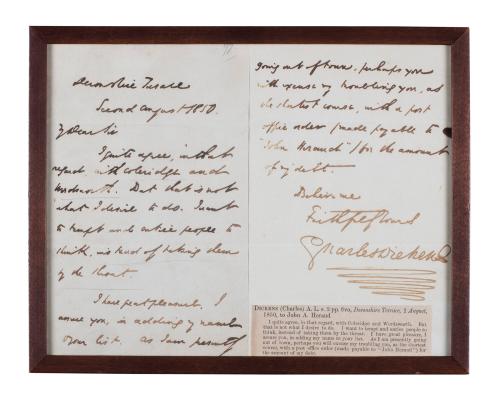 Devonshire Terrace
Second August 1850.
My Dear Sir
I quite agree, in that
regard, with Coleridge and
Wordsworth. But that is not
what I desire to do. I want
to tempt and entice people to
think, instead of taking them
by the throat.
I have great pleasure, I
assure you, in adding my name to
your list. As I am presently
going out of town, perhaps you
will excuse my troubling you, as
the shortest course, with a post
office order (made payable to
"John Heraud") for the amount
of my debt.
Believe me
Faithfully Yours
Charles Dickens
DICKENS (Charles) A. L. s. 2 pp. 8vo, Devonshire Terrace, 2 August,
1850, to John A. Heraud
I quite agree, in that regard, with Coleridge and Wordsworth. But
that is not what I desire to do. I want to tempt and entice people to
think, instead of taking them by the threat. I have great pleasure, I
assure you, in adding my name to your list. As I am presently going
out of town, perhaps you will excuse my troubling you, as the shortest
course, with a post office order (made payable to "John Bennett") for
the amount of my debt.